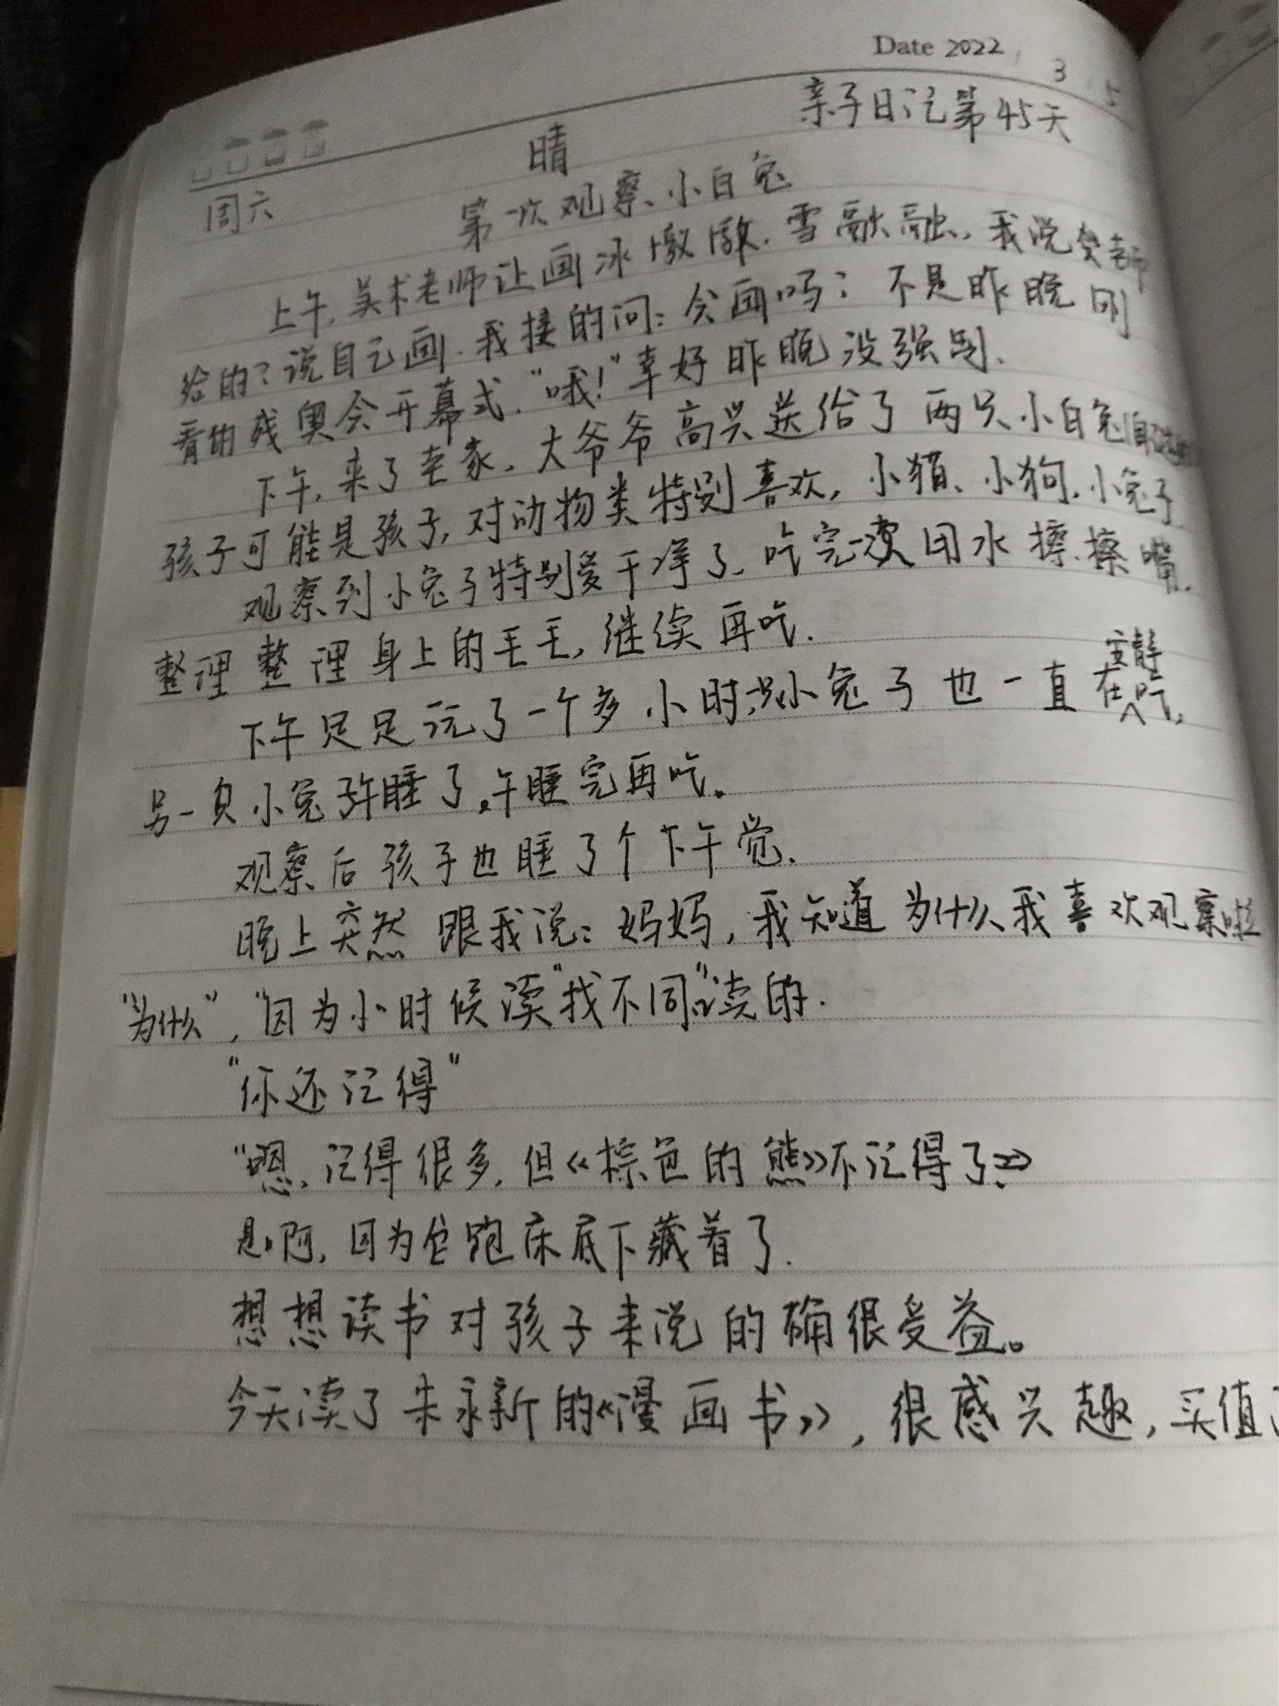 Date 2022 3 5
亲子日记第45天
周六 晴
第一次观察小白兔
上午,美术老师让画冰墩墩.雪融融,我说
给的?说自己画.我接的问:会画吗?不是昨晚刚
看的残奥会开幕式."哦!"幸好昨晚没强制.
下午,来了老家,大爷爷高兴送给了两只小白兔
孩子可能是孩子,对动物类特别喜欢,小猫、小狗,小兔子
观察到小兔子特别爱干净了,吃完一次用水擦擦嘴,
整理整理身上的毛毛,继续再吃.
下午足足玩了一个多小时,小兔子也一直在安静吃,
另一只小兔子午睡了,午睡完再吃。
观察后孩子也睡了个下午觉.
晚上突然跟我说:妈妈,我知道为什么我喜欢观察啦
"为什么","因为小时候读"找不同"读的.
"你还记得"
"嗯,记得很多,但《棕色的熊》不记得了"
是啊,因为它跑床底下藏着了.
想想读书对孩子来说的确很受益。
今天读了朱永新的《漫画书》,很感兴趣,买值了